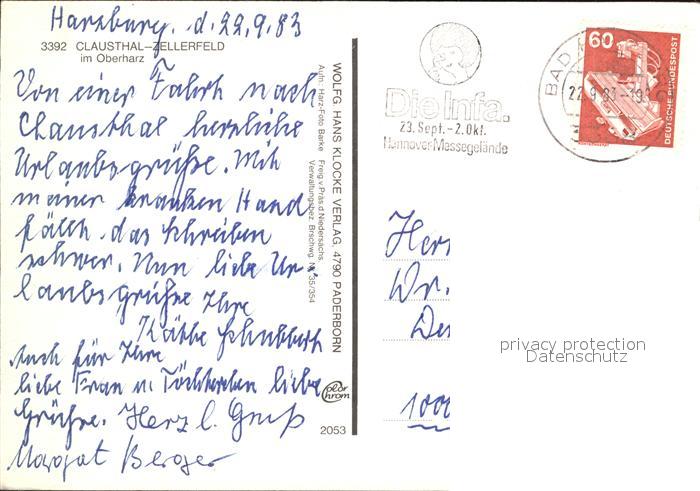 Harzburg. d. 22.9.83
3392 CLAUSTHAL-ZELLERFELD
im Oberharz
Von einer Fahrt nach
Clausthal herzliche
Urlaubsgrüße. Mit
meiner kranken Hand
fällt das Schreiben
schwer. Nun liebe Ur-
laubsgrüße Ihre
Käthe Schubbert
Auch für Ihre
liebe Frau u. Töchterchen liebe
Grüße. Herzl. Gruß
Margot Berger
WOLFG. HANS KLOCKE VERLAG, 4790 PADERBORN
Aufn.: Harz-Foto Barke Freig. v. Präs. d. Niedersächs.
Verwaltungsbez. Brschwg. Nr. 35/354
color
chrom
2053
Die Infa.
23. Sept. - 2. Okt.
Hannover-Messegelände
BAD
22.9.83-19
60
DEUTSCHE BUNDESPOST
Herr
Dr.
1000
privacy protection
Datenschutz